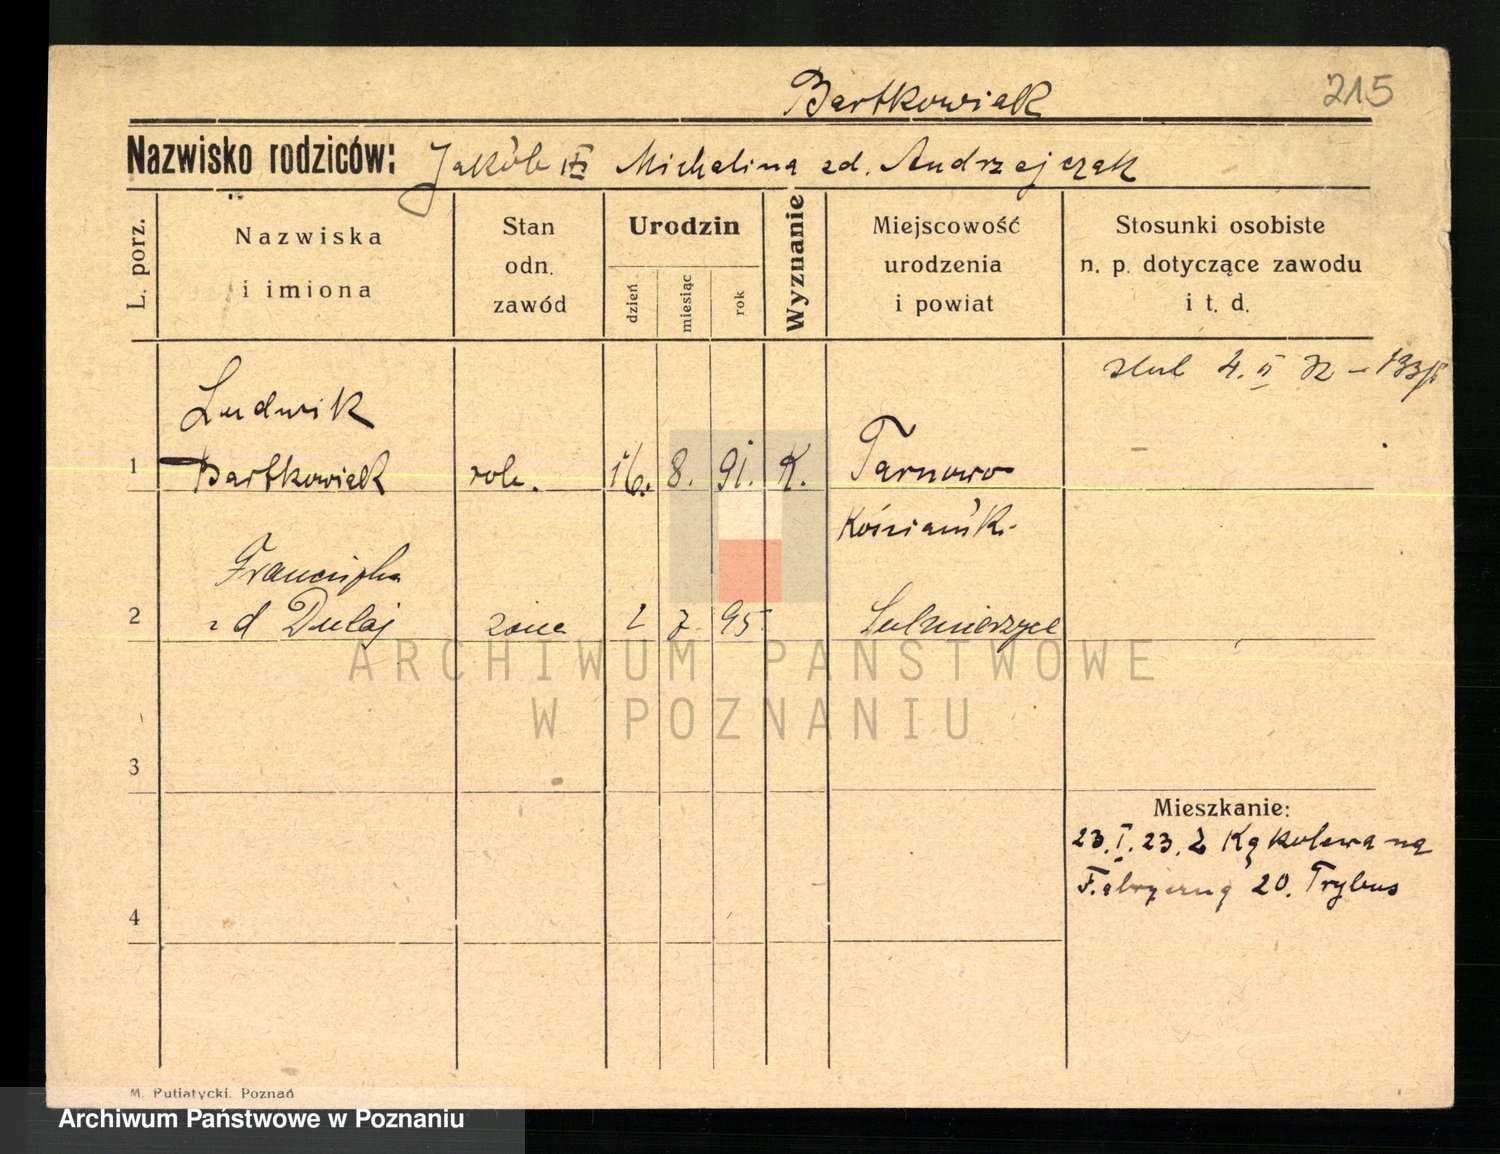 Bartkowiak
215
Nazwisko rodziców: Jakób Michalina zd. Andrzejczak
L. porz.
Nazwiska
i imiona
Stan
odn.
zawód
Urodzin
dzień
miesiąc
rok
Wyznanie
Miejscowość
urodzenia
i powiat
Stosunki osobiste
n. p. dotyczące zawodu
i t. d.
4. II 32
Ludwik
1 Bartkowiak rob. 16. 8. 91. K. Tarnowo
Franciszka
2 zd Dulaj żona 2 7. 95. Sulmierzyce
3
4
Mieszkanie:
23. I. 23. z Kąkolewa na
Fabryczną 20. Trybus
ARCHIWUM PAŃSTWOWE
W POZNANIU
M. Putiatycki. Poznań
Archiwum Państwowe w Poznaniu